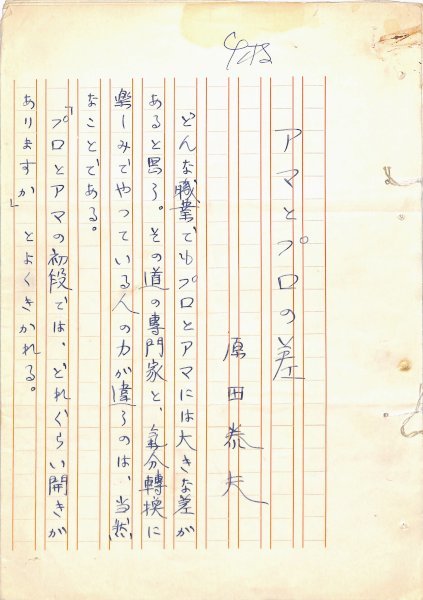 アマとプロの差
原田泰夫
どんな職業でもプロとアマには大きな差が
あると思う。その道の専門家と、氣分轉換に
楽しみでやつている人の力が違うのは、当然
なことである。
「プロとアマの初段では、どれぐらい開きが
ありますか」とよくきかれる。